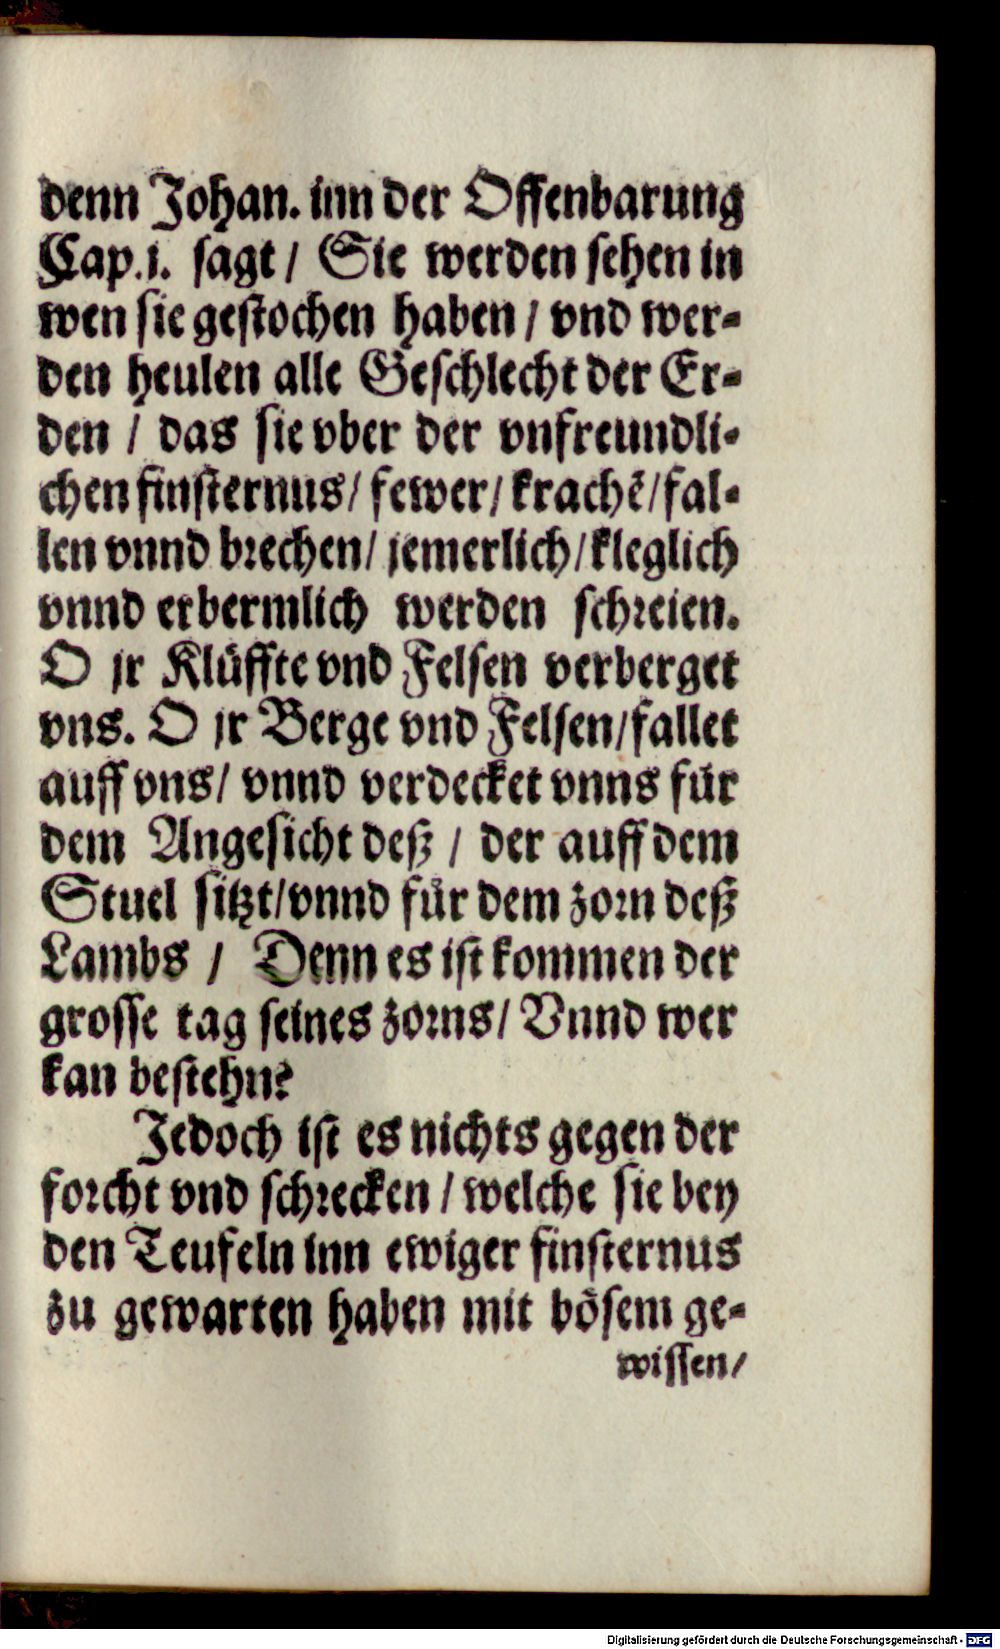 denn Johan. inn der Offenbarung
Cap. i. sagt / Sie werden sehen in
wen sie gestochen haben / vnd wer-
den heulen alle Geschlecht der Er-
den / das sie vber der vnfreundli-
chen finsternus / fewer / krachē / fal-
len vnnd brechen / jemerlich / kleglich
vnnd erbermlich werden schreien.
O jr Klüffte vnd Felsen verberget
vns. O jr Berge vnd Felsen / fallet
auff vns / vnnd verdecket vnns für
dem Angesicht deß / der auff dem
Stuel sitzt / vnnd für dem zorn deß
Lambs / Denn es ist kommen der
grosse tag seines zorns / Vnnd wer
kan bestehn?
Jedoch ist es nichts gegen der
forcht vnd schrecken / welche sie bey
den Teufeln inn ewiger finsternus
zu gewarten haben mit bösem ge-
wissen /
Digitalisierung gefördert durch die Deutsche Forschungsgemeinschaft - DFG